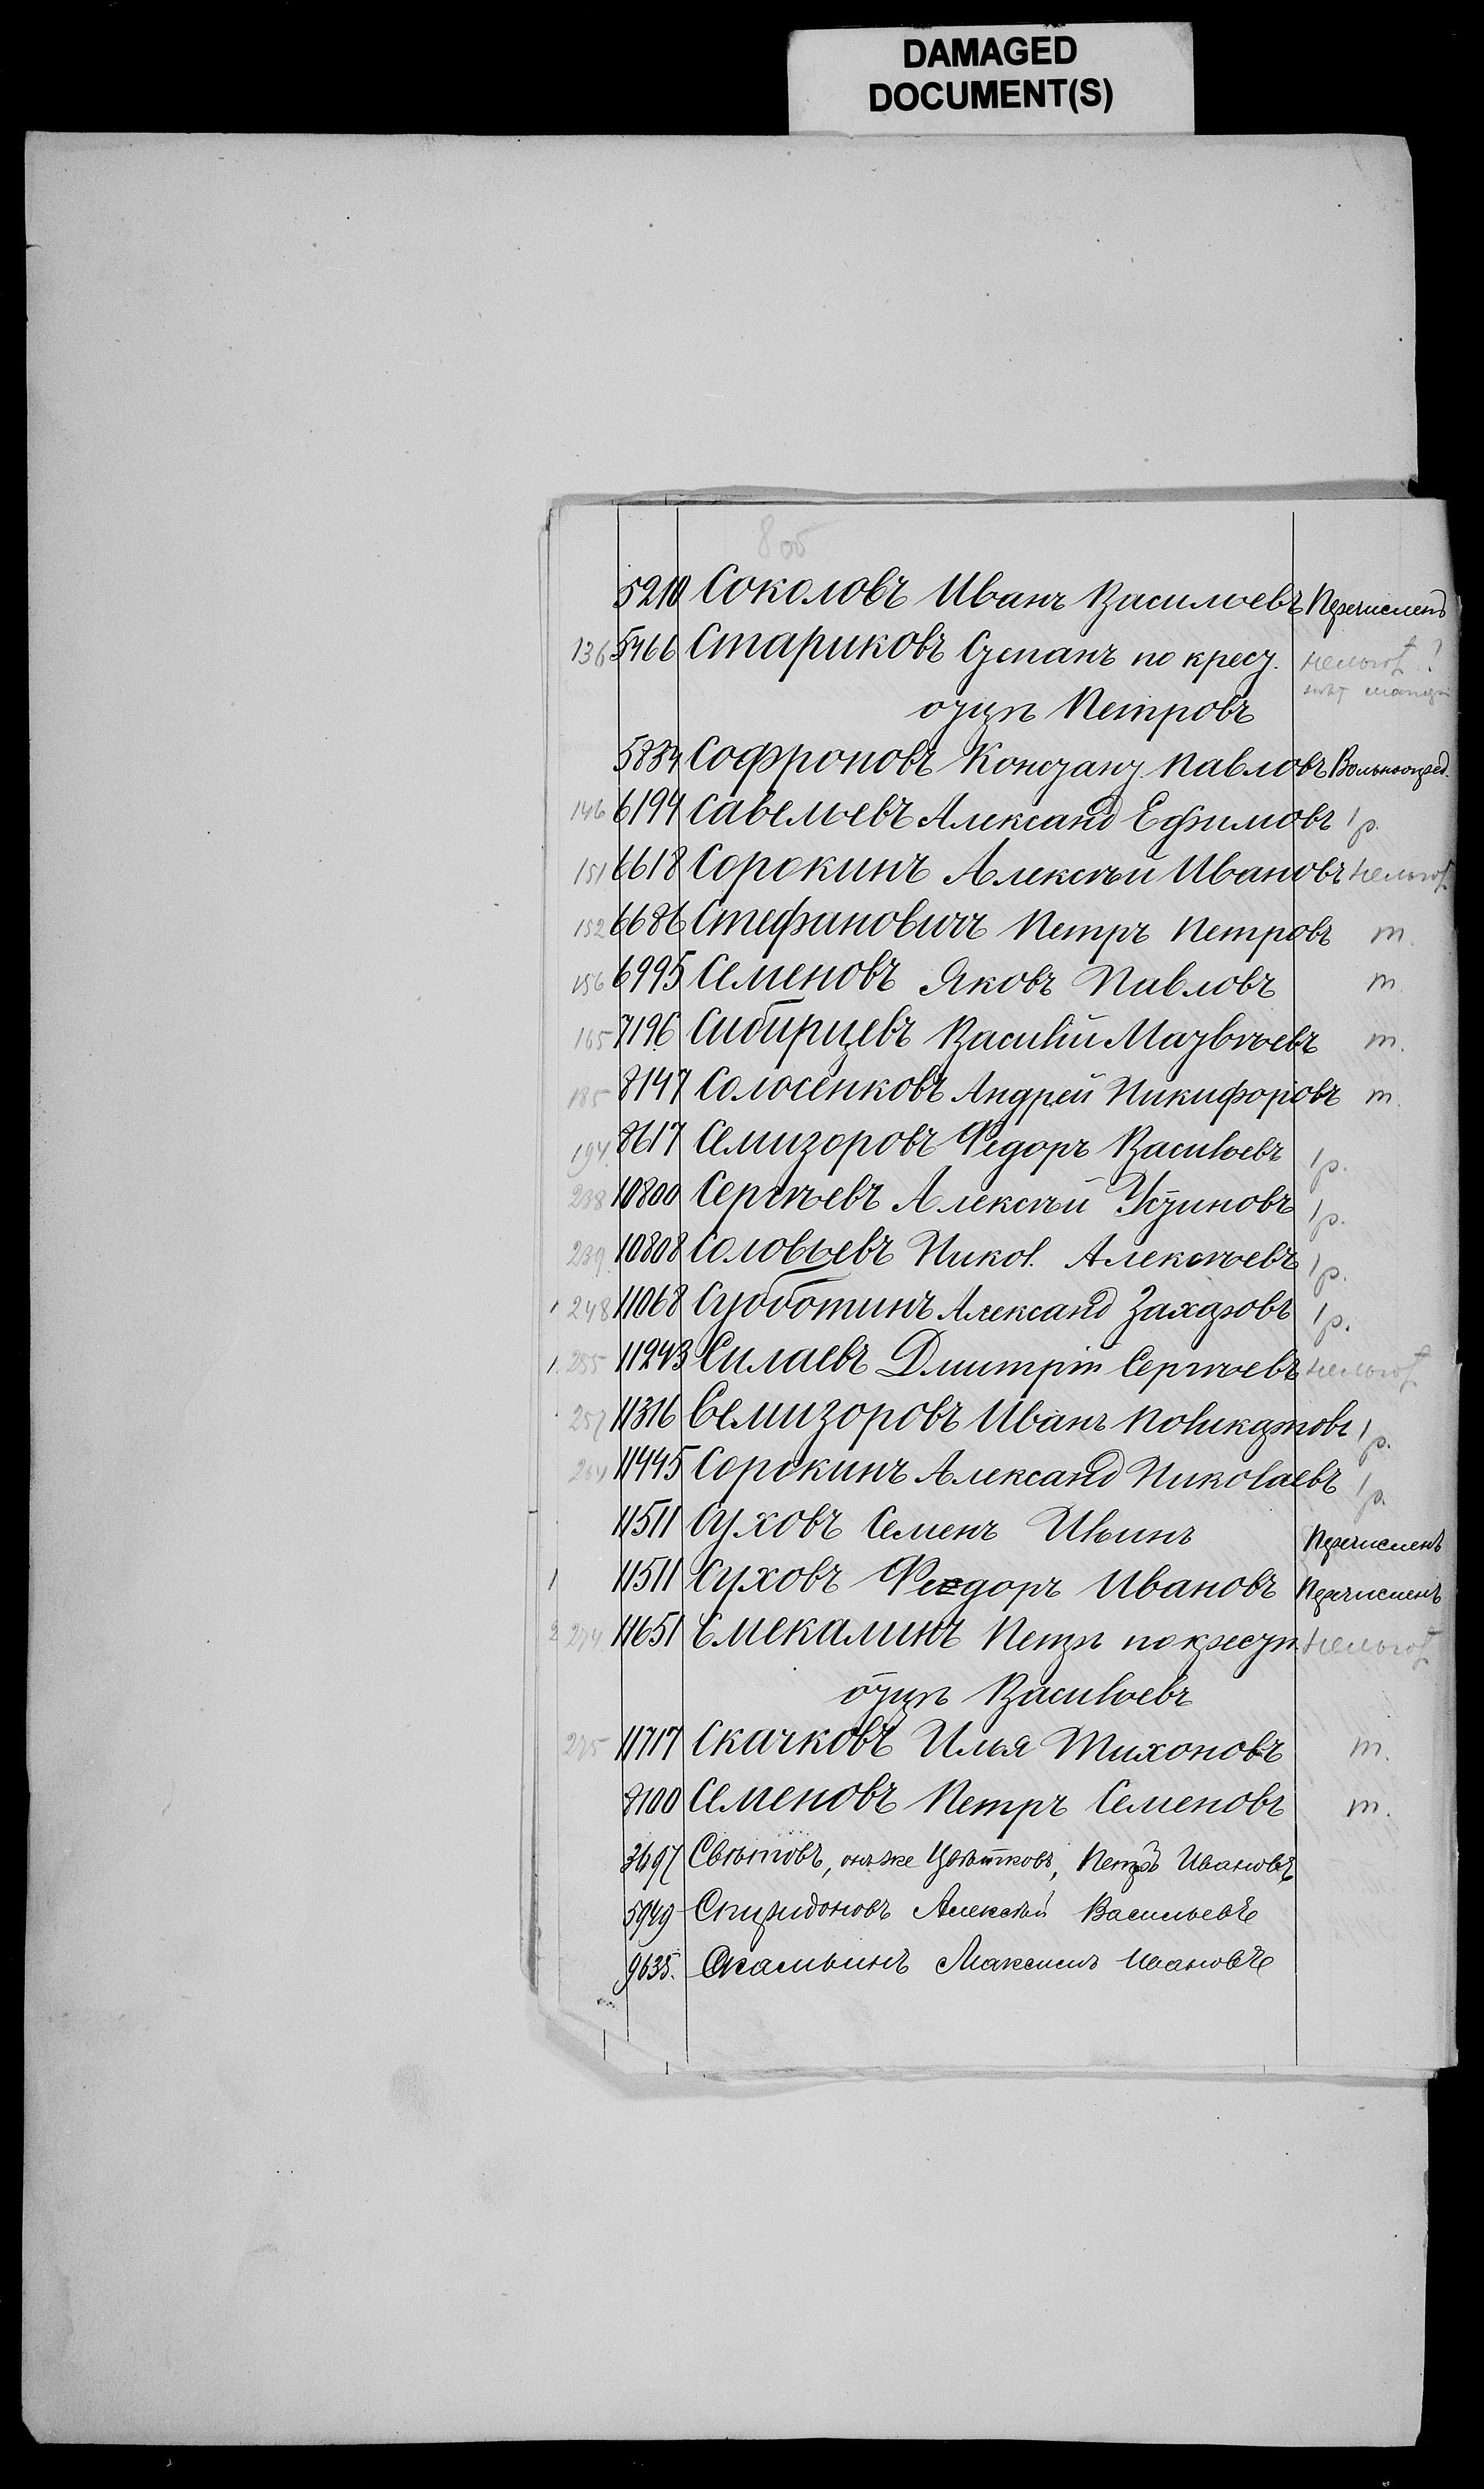 DAMAGED
DOCUMENT(S)
8 об
5210 Соколовъ Иванъ Васильевъ Перечисленъ
136 5466 Стариковъ Степанъ по крест. нельгот. !
отцѣ Петровъ нѣт
5884 Софроновъ Констант. Павловъ Вольноопред.
146 6194 Савельевъ Александ Ефимовъ 1 р.
151 6618 Сорокинъ Алексѣй Ивановъ нельгот
152 6686 Стефановичъ Петръ Петровъ т.
156 6995 Семеновъ Яковъ Павловъ т.
165 7196 Сибирцевъ Василій Матвѣевъ т.
185 8147 Солосенковъ Андрей Никифоровъ т.
194. 8617 Семизоровъ Федоръ Васильевъ 1 р.
238 10800 Сергѣевъ Алексѣй Устиновъ 1 р.
239. 10808 Соловьевъ Никол. Алексѣевъ 1 р.
248 11068 Субботинъ Александ Захаровъ 1 р.
1. 255 11243 Силаевъ Дмитрій Сергѣевъ нельгот
257 11316 Семизоровъ Иванъ Поликарповъ 1 р.
264 11445 Сорокинъ Александ Николаевъ 1 р.
11511 Суховъ Семенъ Ильинъ Перечисленъ
1 11511 Суховъ Федоръ Ивановъ Перечисленъ
2 274 11651 Смекалинъ Петръ по крестн. нельгот
отцѣ Васильевъ
275 11717 Скачковъ Илья Тихоновъ т.
8100 Семеновъ Петръ Семеновъ т.
3697 Свѣтовъ, онъ же Цвѣтковъ, Петръ Ивановъ
5949 Спиридоновъ Алексѣй Васильевъ
9635. Максимъ Ивановъ